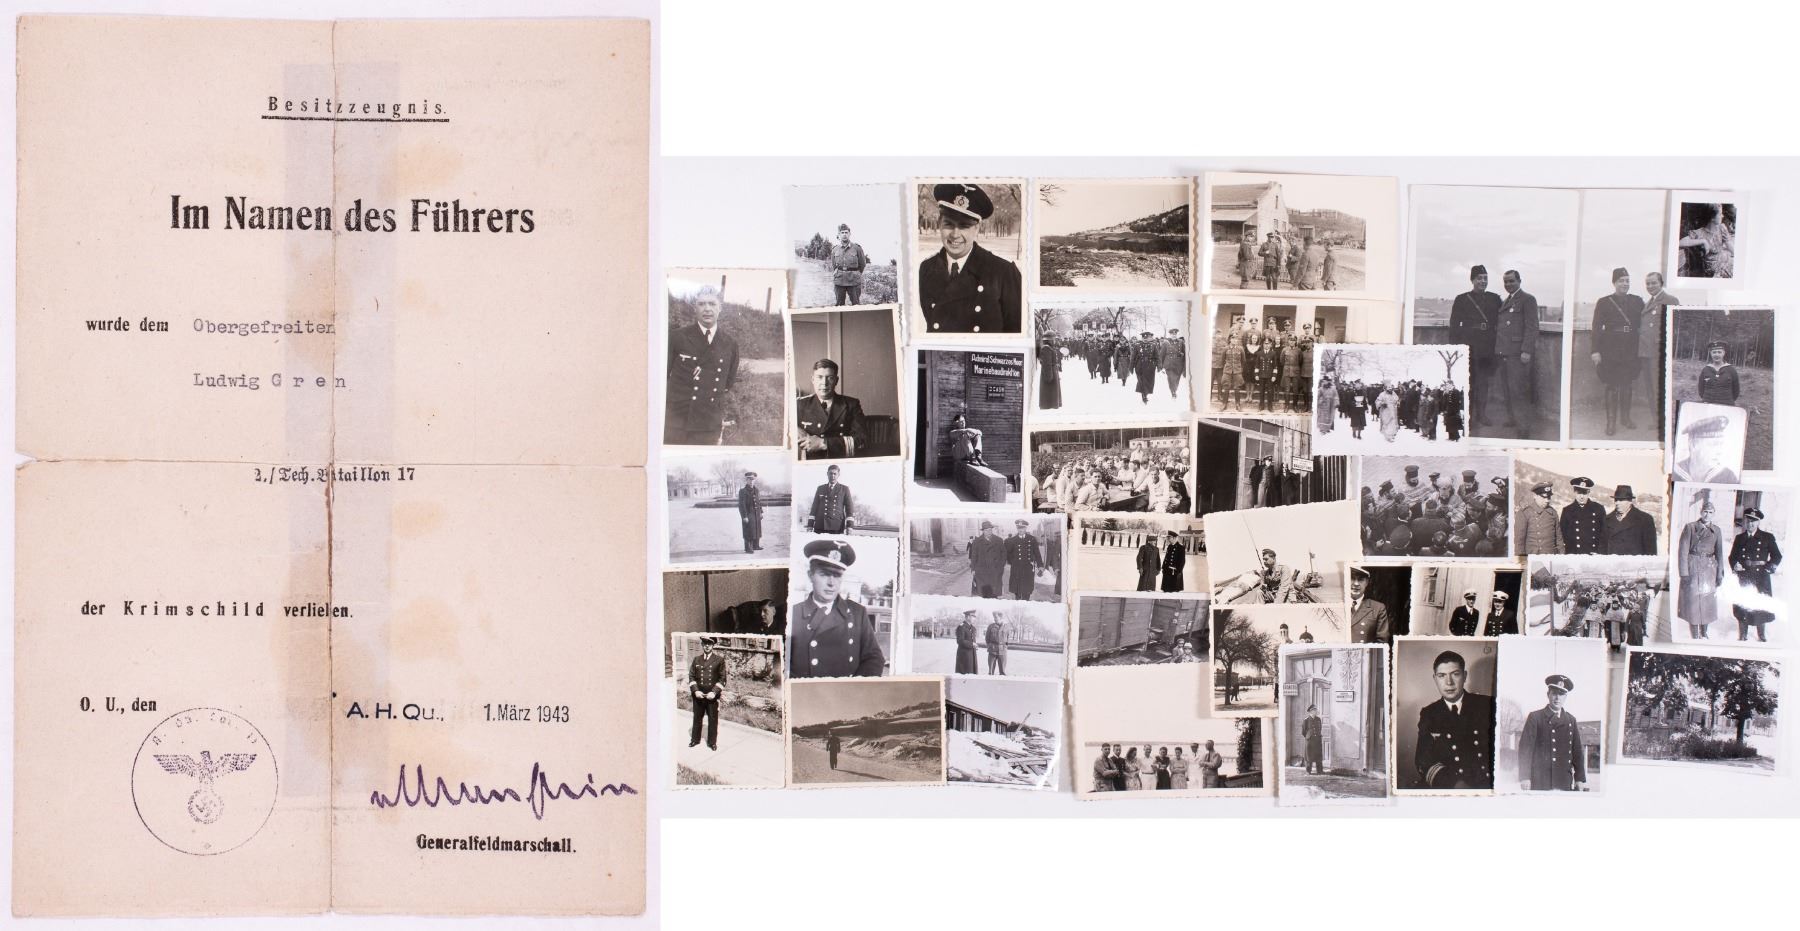 Besitzzeugnis.
Im Namen des Führers
wurde dem Obergefreiten
Ludwig Gren
2./Tech. Bataillon 17
der Krimschild verliehen.
O. U., den A.H.Qu., 1. März 1943
v Manstein
Generalfeldmarschall.
Admiral Schwarzes Meer
Marinebaudirektion